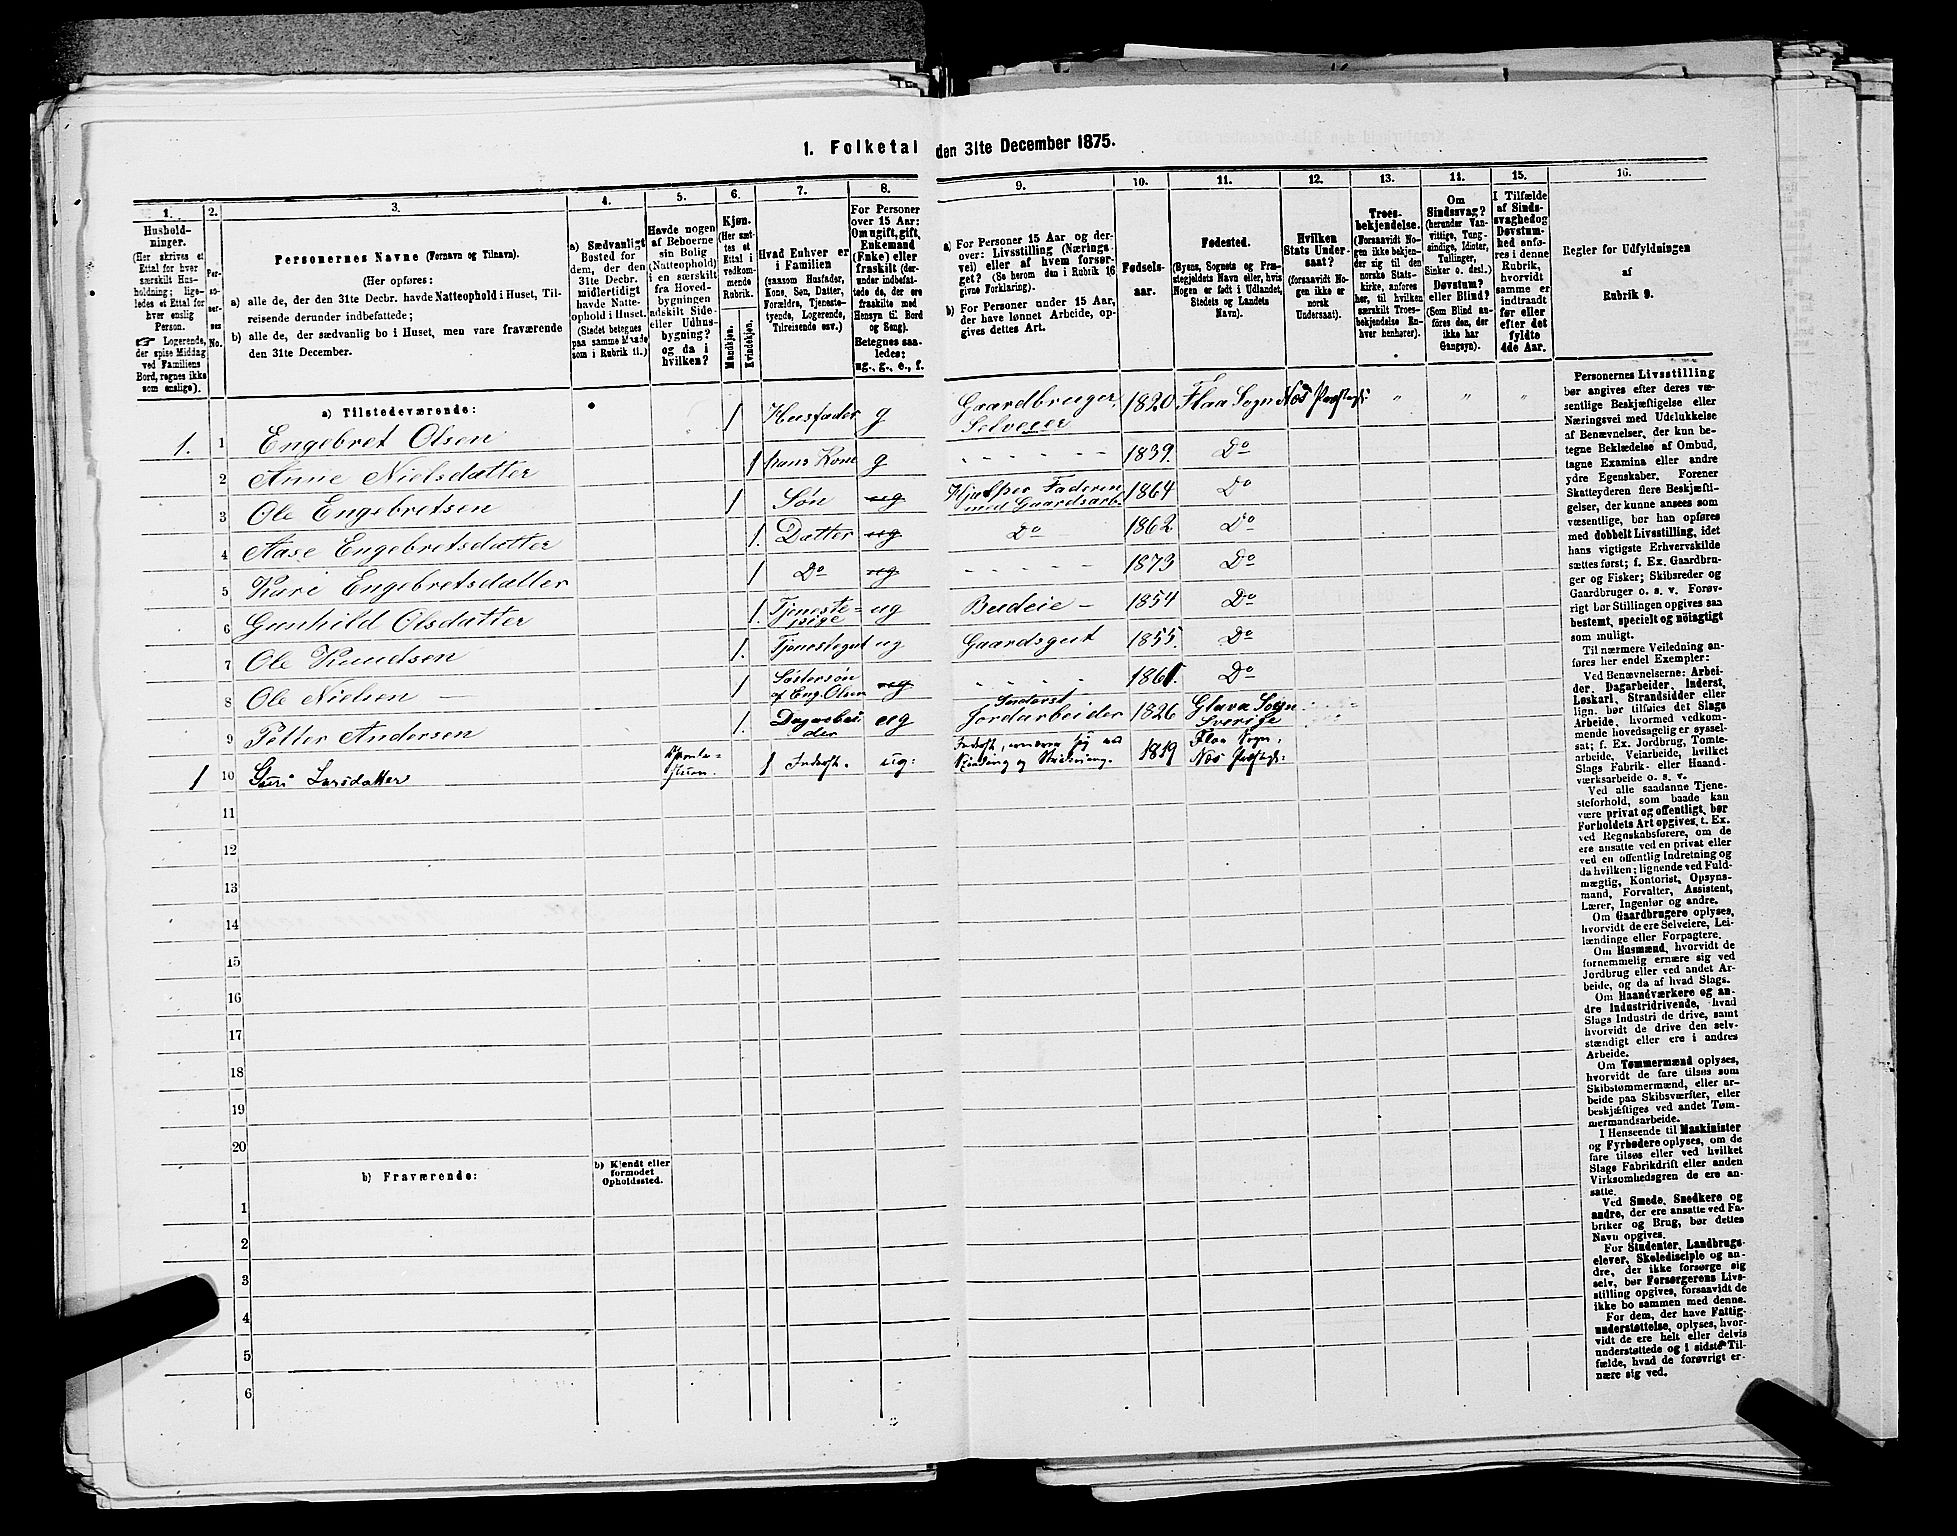 1. Folketal den 31te December 1875.
1. 2. 3. 4. 5. 6. 7. 8. 9. 10. 11. 12. 13. 14. 15. 16.
Husholdninger.
(Her skrives et
Ettal for hver
særskilt Husholdning;
ligeledes et Ettal for
hver enslig
Person.
Logerende,
der spise Middag
ved Familiens
Bord, regnes ikke
som enslige).
Personernes No.
Personernes Navne (Fornavn og Tilnavn).
(Her opføres:
a) alle de, der den 31te Decbr. havde Natteophold i Huset, Tilreisende
derunder indbefattede;
b) alle de, der sædvanlig bo i Huset, men vare fraværende
den 31te December.
a) Sædvanligt
Bosted for
dem, der den
31te Decbr.
midlertidigt
havde Natteophold
i Huset.
(Stedet betegnes
paa samme Maade
som i Rubrik 11.)
Havde nogen
af Beboerne
sin Bolig
(Natteophold)
i en særskilt
fra Hovedbygningen
adskilt Side- eller
Udhusbygning?
og da i
hvilken?
Kjøn.
(Her sættes
et Ettal i
vedkommende
Rubrik.
Mandkjøn.
Kvindekjøn.
Hvad Enhver er
i Familien
(saasom Husfader,
Kone, Søn, Datter,
Forældre, Tjenestetyende,
Logerende,
Tilreisende osv.)
For Personer
over 15 Aar:
Om ugift, gift,
Enkemand
(Enke) eller
fraskilt (derunder
indbefattede
de, der ere
fraskilte med
Hensyn til Bord
og Seng).
Betegnes saaledes:
ug., g., e., f.
a) For Personer 15 Aar og derover:
Livsstilling (Næringsvei)
eller af hvem forsørget?
(Se herom den i Rubrik 16
givne Forklaring).
b) For Personer under 15 Aar,
der have lønnet Arbeide, opgives
dettes Art.
Fødselsaar.
Fødested.
(Byens, Sognets og Præstegjeldets
Navn eller, hvis
Nogen er født i Udlandet,
Stedets og Landets
Navn).
Hvilken
Stats Undersaat?
(forsaavidt Nogen
ikke er
norsk
Undersaat).
Troesbekjendelse.
(Forsaavidt Nogen
ikke bekjender
sig til den
norske Statskirke,
anføres
her, til hvilken
særskilt Troesbekjendelse
Enhver
henhører).
Om
Sindssvag?
(herunder Vanvittige,
Tungsindige,
Idioter,
Tullinger,
Sinker o. desl.)
Døvstum?
eller Blind?
(Som Blind anføres
den, der
ikke har
Gangsyn).
I Tilfælde
af Sindssvaghed og
Døvstumhed
anføres
i denne
Rubrik,
hvorvidt
samme er
indtraadt
før eller
efter det
fyldte
4de Aar.
Regler for Udfyldningen
af
Rubrik 9.
a) Tilstedeværende:
1. 1 Engebret Olsen 1 Huusfader g Gaardbruger, Selveier 1820 Flaa Sogn Næs Præstegj: " " "
2 Anne Nielsdatter 1 hans Kone g - - - - - 1839. Do
3 Ole Engebretsen 1 Søn ug Hjælper Faderen med Gaardsarb. 1864 Do
4 Aase Engebretsdatter 1. Datter ug Do 1862 Do
5 Kari Engebretsdatter 1 Do ug - - - - - 1873 Do
6 Gunhild Olsdatter 1. Tjenestepige ug Budeie - 1854 Do
7 Ole Knudsen 1. Tjenestegut ug Gaardsgut 1855. Do
8 Ole Nielsen - 1 Søstersøn af Eng. Olsen ug - - - - 1861. Do
9 Petter Andersen 1. ug Inderst Jordarbeider 1826 Glava Sogn Sverige
1 10 Guri Larsdatter 1 Inderst. ug: 1819 Flaa Sogn, Næs Præstegj:
11
12
13
14
15
16
17
18
19
20
b) Fraværende:
b) Kjendt eller
formodet
Opholdssted.
1
2
3
4
5
6
Personernes Livsstilling
bør angives efter deres væsentlige
Beskjæftigelse eller
Næringsvei med Udelukkelse
af Benævnelser, der kun betegne
Beklædelse af Ombud,
tagne Examina eller andre
ydre Egenskaber. Forener
Skatteyderen flere Beskjæftigelser,
der kunne ansees som
væsentlige, bør han opføres
med dobbelt Livsstilling, idet
hans vigtigste Erhvervskilde
sættes først; f. Ex. Gaardbruger
og Fisker; Skibsreder og
Gaardbruger o. s. v. Forøvrigt
bør Stillingen opgives saa
bestemt, specielt og nøiagtigt
som muligt.
Til nærmere Veiledning anføres
her endel Exempler:
Ved Benævnelserne: Arbeider,
Dagarbeider, Inderst,
Løskarl, Strandsidder eller
lign. bør tilføies det Slags
Arbeide, hvormed vedkommende
hovedsagelig er sysselsat;
f. Ex. Jordbrug, Tomtearbeide,
Veiarbeide, hvilket
Slags Fabrik- eller Haandværksarbeide
o. s. v.
Ved alle saadanne Tjenesteforhold,
som baade kan
være privat og offentligt, bør
Forholdets Art opgives, t. Ex.
ved Regnskabsførere, om de
ere ansatte ved en privat eller
ved en offentlig Indretning og
da hvilken; lignende ved Fuldmægtig,
Kontorist, Opsynsmand,
Forvalter, Assistent,
Lærer, Ingeniør og andre.
Om Gaardbrugere oplyses,
hvorvidt de ere Selveiere, Leilændinge
eller Forpagtere.
Om Husmænd, hvorvidt de
fornemmelig ernære sig ved
Jordbrug eller ved andet Arbeide,
og da af hvad Slags.
Om Haandværkere og andre
Industridrivende, hvad
Slags Industri de drive, samt
hvorvidt de drive den selvstændigt
eller ere i andres
Arbeide.
Om Tømmermænd oplyses,
hvorvidt de fare tilsøs som
Skibstømmermænd, eller arbeide
paa Skibsværfter, eller
beskjæftiges ved andet Tømmermandsarbeide.
I Henseende til Maskinister
og Fyrbødere oplyses, om de
fare tilsøs eller ved hvilket
Slags Fabrikdrift eller anden
Virksomhedsgren de ere ansatte.
Ved Smede, Snedkere og
andre, der ere ansatte ved Fabriker
og Brug, bør dettes
Navn opgives.
For Studenter, Landbrugselever,
Skoledisciple og andre,
der ikke forsørge sig
selv, bør Forsørgerens Livsstilling
opgives, forsaavidt de
ikke bo sammen med denne.
For dem, der have Fattigunderstøttelse,
oplyses, hvorvidt
de ere helt eller delvis
understøttede og i sidste Tilfælde,
hvad de forøvrigt ernære
sig ved.